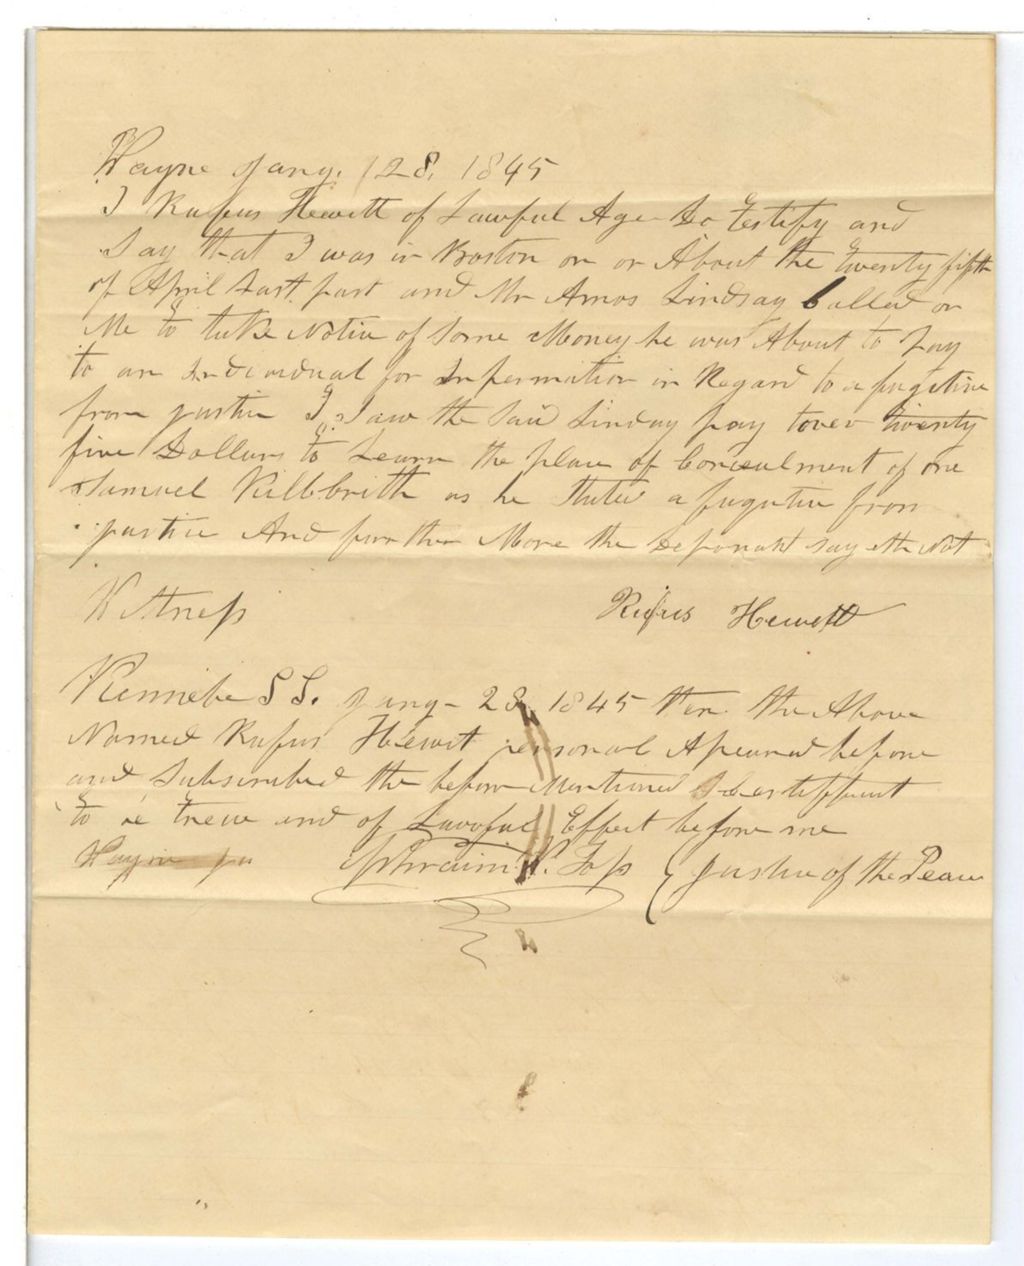 Wayne Jany. 28. 1845
I Rufus Hewett of Lawful Age Do Testify and
Say that I was in Boston on or About the twenty fifth
of April Last past and Mr Amos Lindsay Called on
Me to take Notice of Some Money he was About to Pay
to an Individual for Information in Regard to a fugitive
from justice I Saw the said Lindsay pay over twenty
five Dollars to Learn the place of Concealment of one
Samuel Killbrith as he States a fugitive from
justice And further More the Deponant sayeth Not
Witness Rufus Hewett
Kennebe SS. Jany - 28, 1845 then the Above
Named Rufus Hewet personal Apeared before
and Subscribed the before Mentioned
to be treue and of Lawful Effect before me
Wayne Ephraim Foss Justice of the Peace